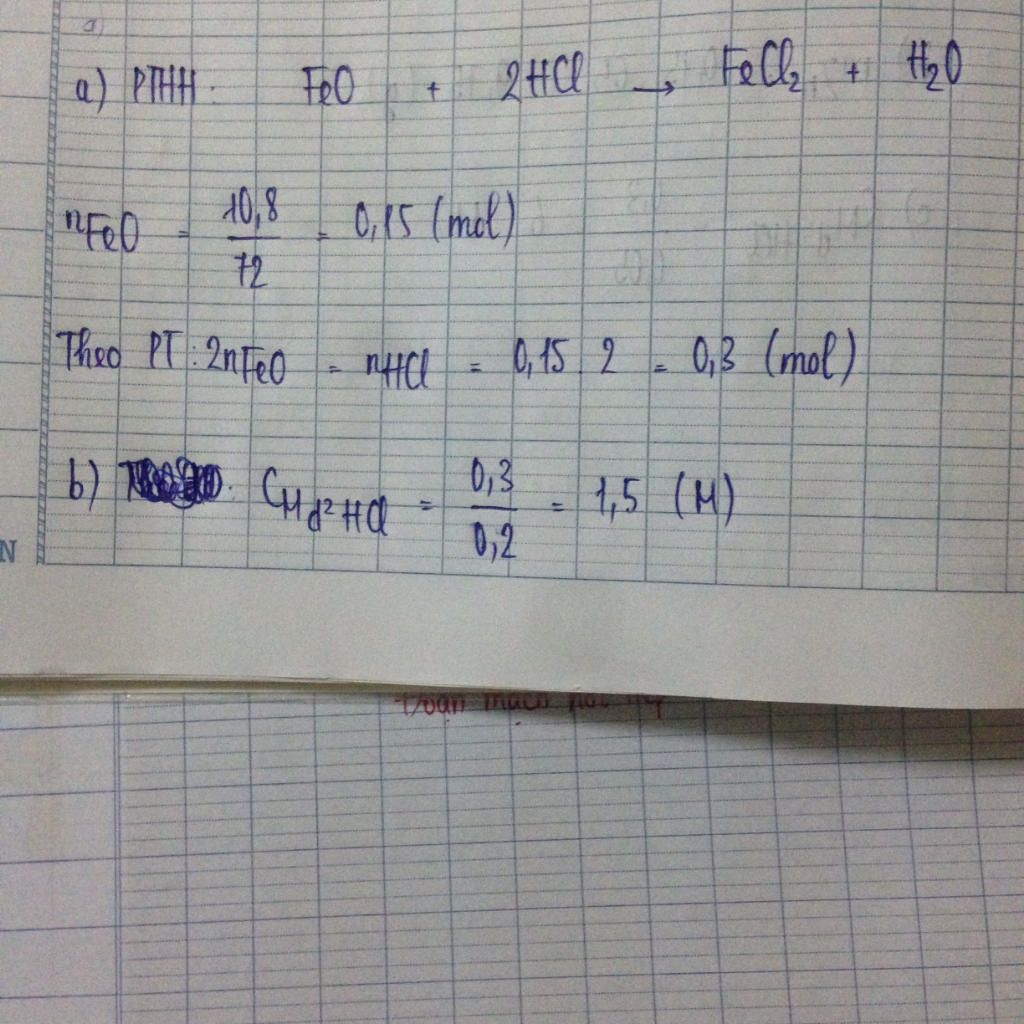 a) PTHH: FeO + 2HCl → FeCl₂ + H₂O
nFeO = 10,8 / 72 = 0,15 (mol)
Theo PT: 2nFeO = nHCl = 0,15 . 2 = 0,3 (mol)
b) CM d² HCl = 0,3 / 0,2 = 1,5 (M)
N